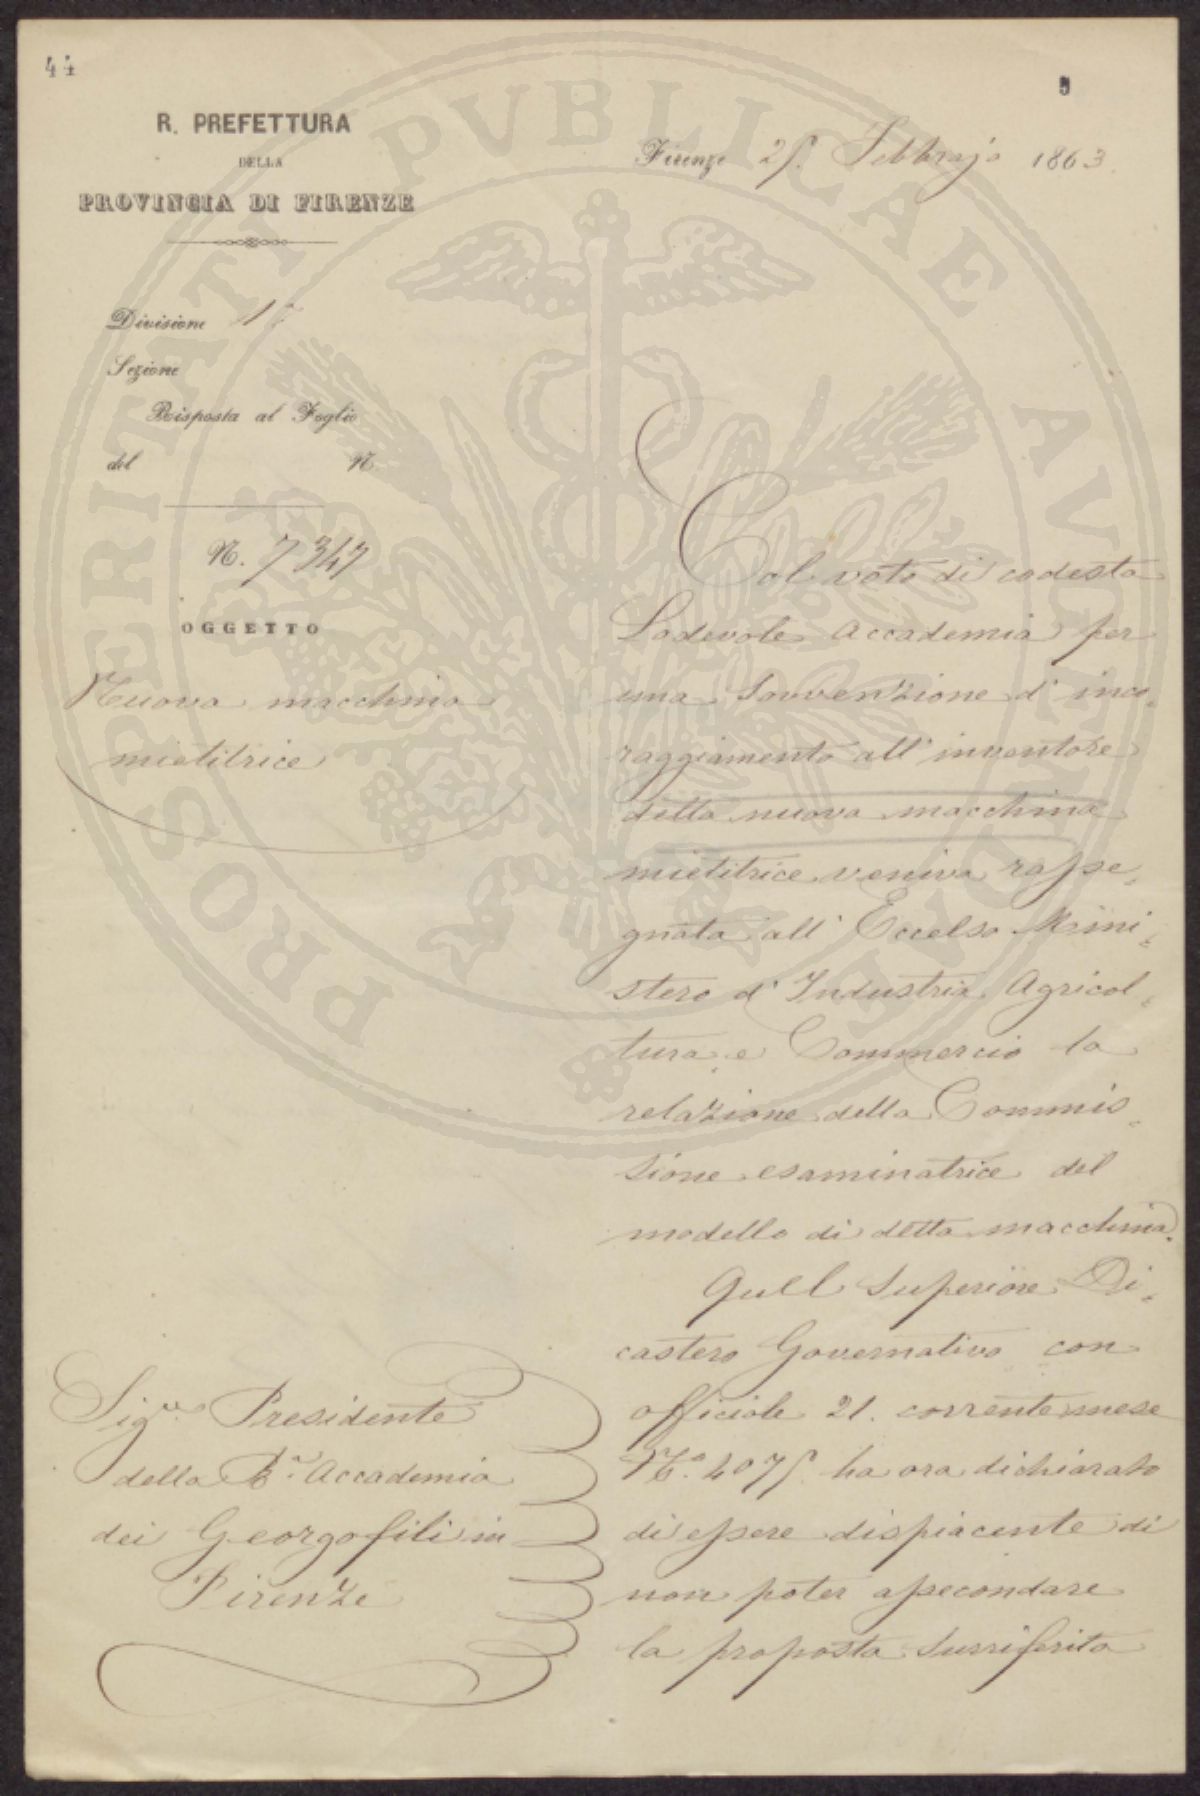 44
9
R. PREFETTURA
DELLA
PROVINCIA DI FIRENZE
Firenze 25. Febbrajo 1863.
Divisione 1ª
Sezione
Risposta al Foglio
del N.
N. 7347
OGGETTO
Nuova macchina
mietitrice
Col voto di codesta
Lodevole Accademia per
una Sovvenzione d' inco,,
raggiamento all' inventore
della nuova macchina
mietitrice veniva rasse,,
gnata all' Eccelso Mini,,
stero d' Industria, Agricol,,
tura e Commercio la
relazione della Commis,,
sione esaminatrice del
modello di detta macchina.
Quell Superiore Di,,
castero Governativo con
officiale 21. corrente mese
Nº. 4075. ha ora dichiarato
di essere dispiacente di
non poter assecondare
la proposta surriferita
Sigʳᵉ Presidente
della Rª. Accademia
dei Georgofili in
Firenze
PROSPERITATI PVBLICAE AVGENDAE